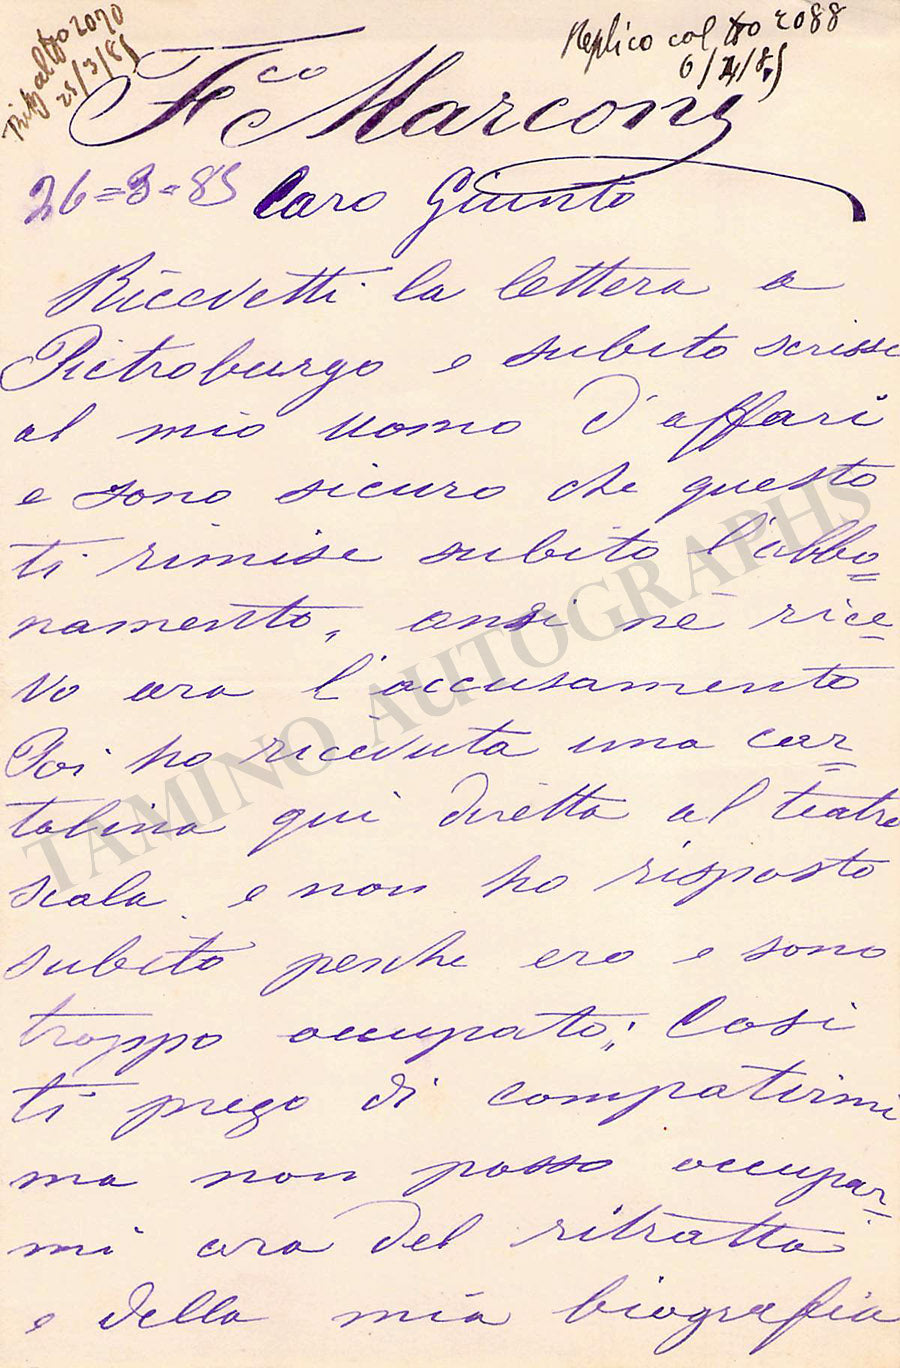 col No 2070
25/3/85
Replico col No 2088
6/4/85
Fco Marconi
26=3=85 Caro Giunto
Ricevetti la lettera a
Pietroburgo e subito scrissi
al mio uomo d'affari
e sono sicuro che questo
ti rimise subito l'abbo=
namento, anzi ne rice=
vo ora l'accusamento
Poi ho ricevuta una car=
tolina qui diretta al teatro
scala e non ho risposto
subito perche ero e sono
troppo occupato; Cosi
ti prego di compatirmi
ma non posso occupar=
mi ora del ritratto
e della mia biografia
TAMINO AUTOGRAPHS